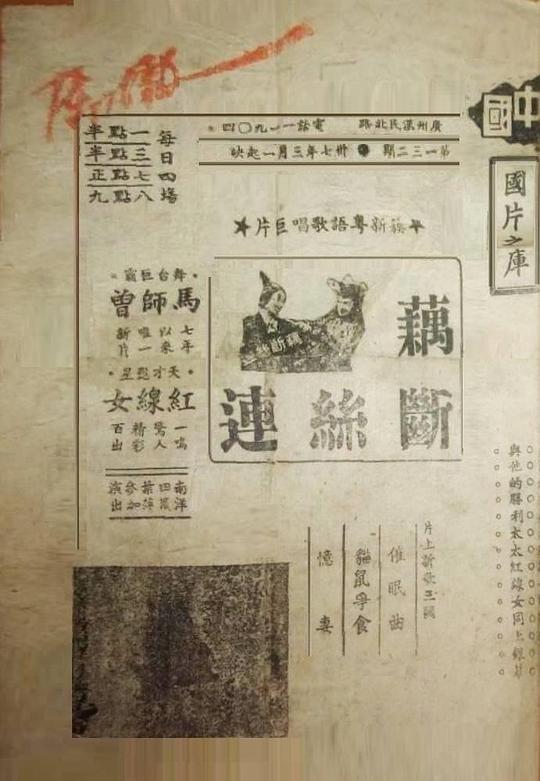 中國
國片之庫
廣州漢民北路 電話一一九〇四
第一三二期 ● 卅七年三月一起映
每日四場
一點半
三點半
七點正
八點九
★簇新粵語歌唱巨片★
藕
斷絲連
舞台巨霸
馬師曾
七年以來唯一新片
天才艷星
紅線女
一鳴驚人精彩百出
南洋 參加演出
片上新歌三
催眠曲
貓鼠爭食
憶妻
與他的勝利太太紅線女同上銀幕